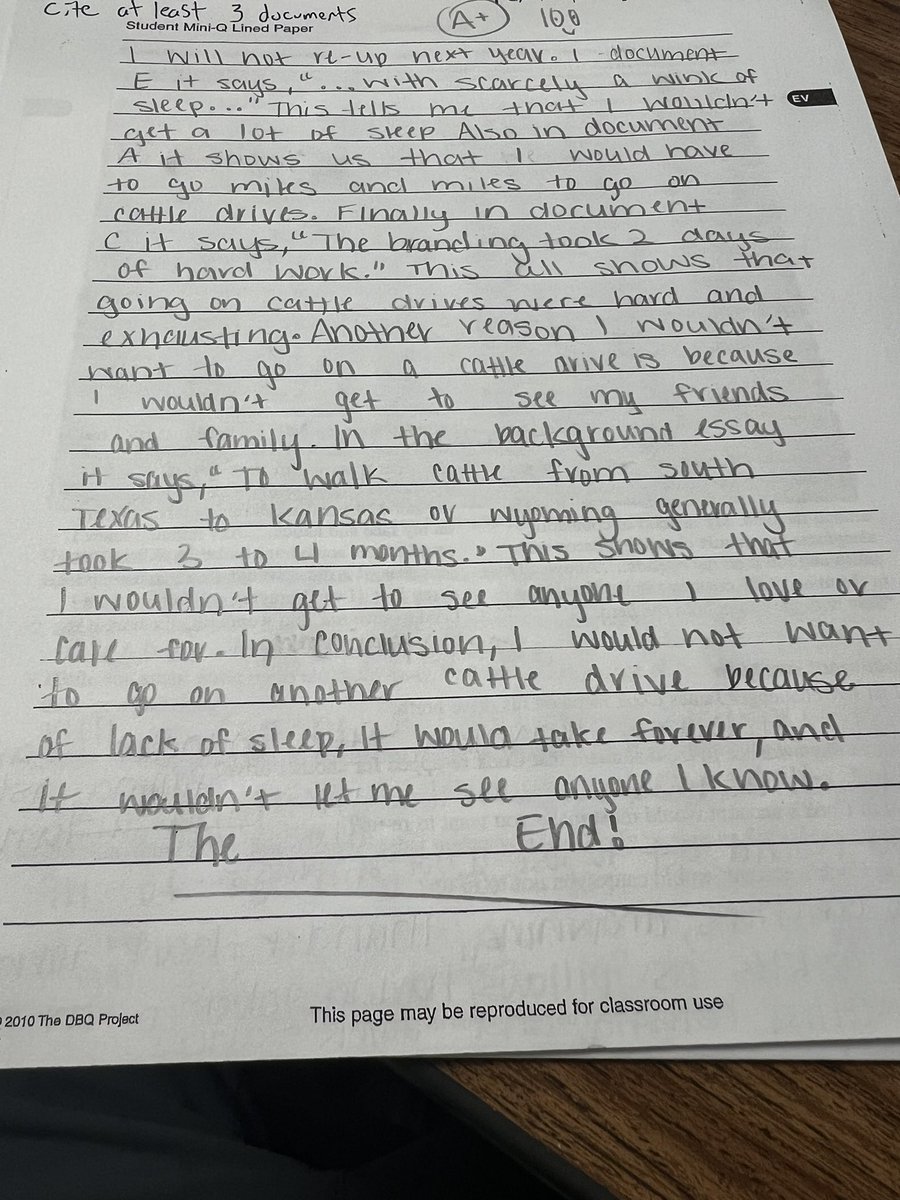 Cite at least 3 documents
A+ 100
Student Mini-Q Lined Paper
I will not re-up next year. I document
E it says, "... with scarcely a wink of
sleep..." This tells me that I wouldn't
EV
get a lot of sleep Also in document
A it shows us that I would have
to go miles and miles to go on
cattle drives. Finally in document
C it says, "The branding took 2 days
of hard work." This all shows that
going on cattle drives were hard and
exhausting. Another reason I wouldn't
want to go on a cattle drive is because
I wouldn't get to see my friends
and family. In the background essay
it says, "To walk cattle from south
Texas to Kansas or Wyoming generally
took 3 to 4 months." This shows that
I wouldn't get to see anyone I love or
care for. In conclusion, I would not want
to go on another cattle drive because
of lack of sleep, It would take forever, and
It wouldn't let me see anyone I know.
The End!
2010 The DBQ Project
This page may be reproduced for classroom use